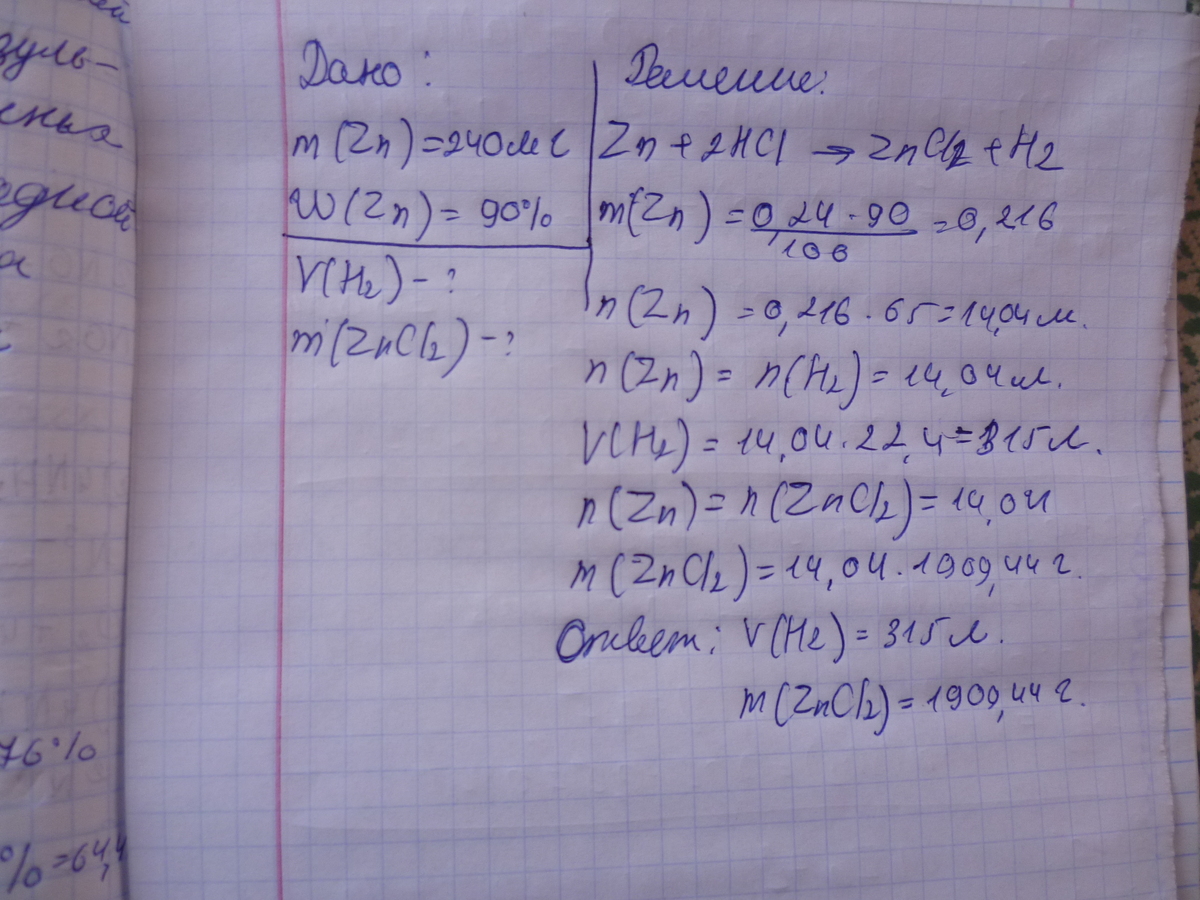 зуль-
76%
% = 64,4
Дано:
m(Zn) = 240мг
W(Zn) = 90%
V(H2) - ?
m(ZnCl2) - ?
Решение:
Zn + 2HCl → ZnCl2 + H2
m(Zn) = 0,24 · 90 / 100 = 0,216
n(Zn) = 0,216 · 65 = 14,04 м.
n(Zn) = n(H2) = 14,04 м.
V(H2) = 14,04 · 22,4 = 315 л.
n(Zn) = n(ZnCl2) = 14,04
m(ZnCl2) = 14,04 · 1909,44 г.
Ответ: V(H2) = 315 л.
m(ZnCl2) = 1909,44 г.